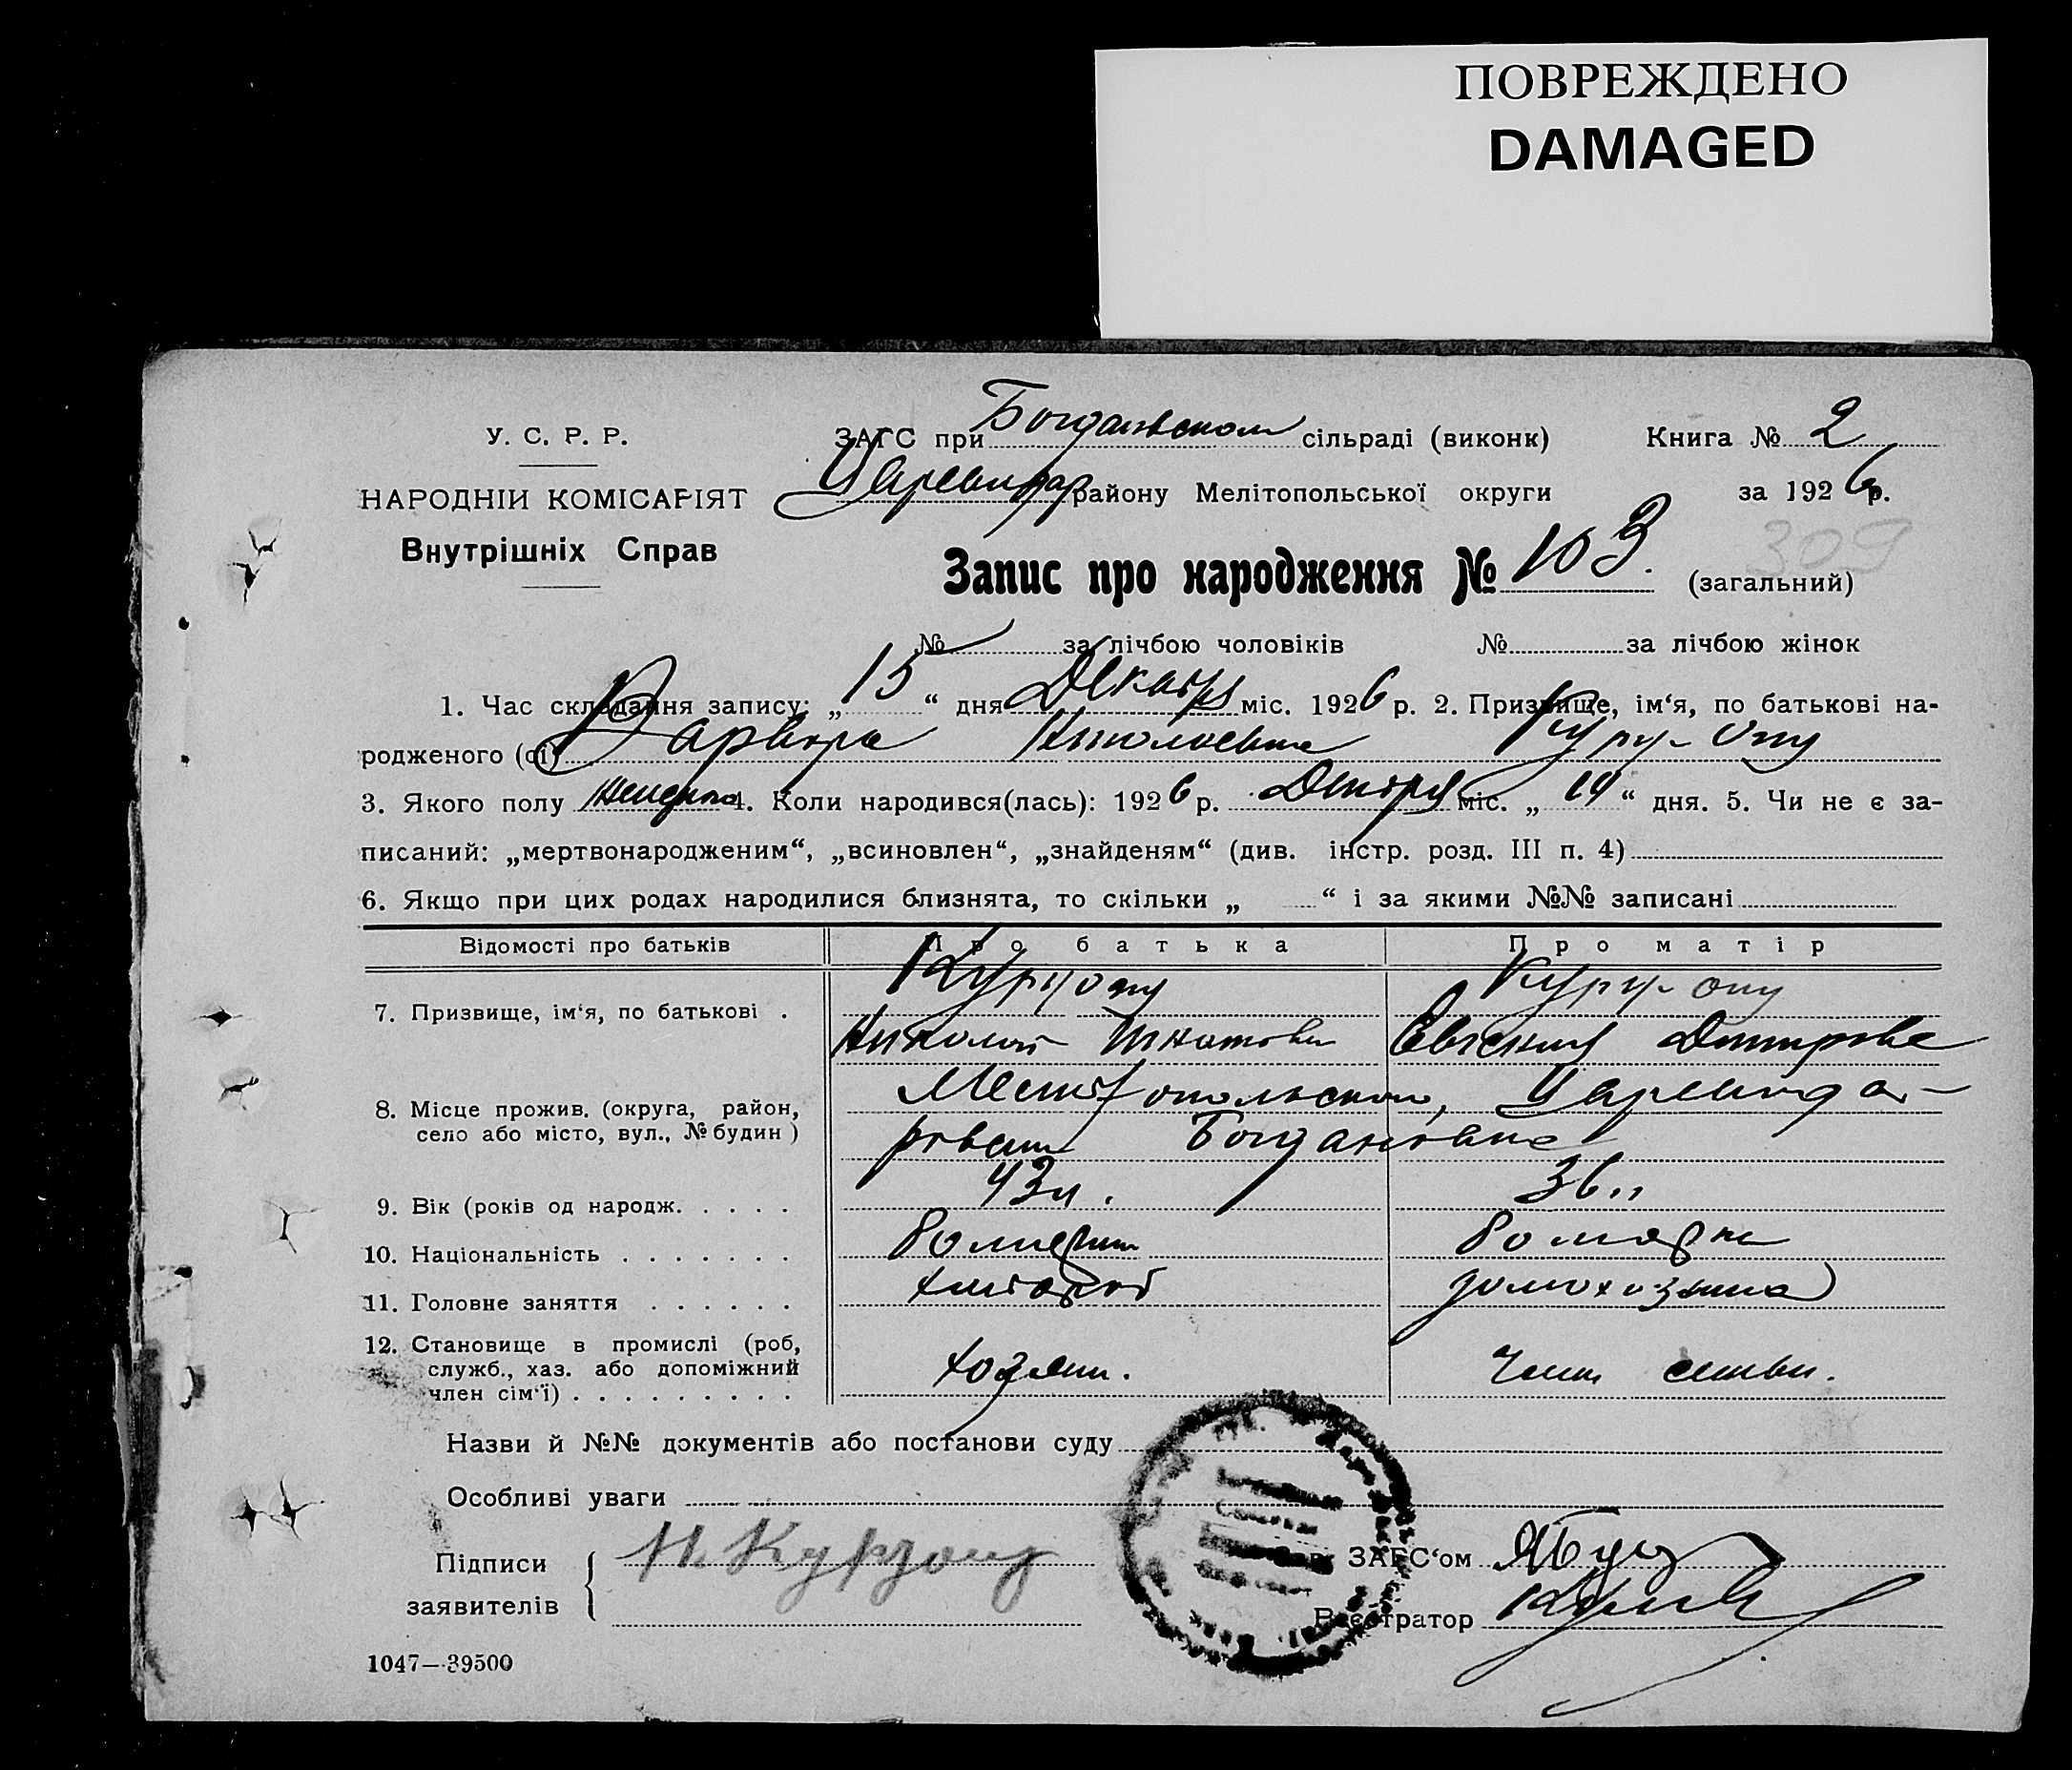 ПОВРЕЖДЕНО
DAMAGED
У. С. Р. Р.
НАРОДНІЙ КОМІСАРІЯТ
Внутрішніх Справ
ЗАГС при Богдановском сільраді (виконк) Книга № 2
Царевидар району Мелітопольської округи за 1926 р.
Запис про народження № 103. (загальний)
309
№ за лічбою чоловіків № за лічбою жінок
1. Час складання запису: „15“ дня Декабря міс. 1926 р. 2. Призвище, ім‘я, по батькові на-
родженого (сі) Варвара Николаевна
3. Якого полу женска 4. Коли народився(лась): 1926 р. Декабря міс. „14“ дня. 5. Чи не є за-
писаний: „мертвонародженим“, „всиновлен“, „знайденям“ (див. інстр. розд. III п. 4)
6. Якщо при цих родах народилися близнята, то скільки „ “ і за якими №№ записані
Відомості про батьків Про батька Про матір
7. Призвище, ім‘я, по батькові .
Николай Игнатови Евгения Дмитровна
8. Місце прожив. (округа, район,
село або місто, вул., № будин )
Мелитопольском, Царевида-
ровски Богдановка
9. Вік (років од народж. . . . . 43л. 36л
10. Національність . . . . . . . Болгарин Болгарка
11. Головне заняття . . . . . . хлебороб домохозяйка
12. Становище в промислі (роб,
служб., хаз. або допоміжний
член сім‘ї) . . . . . . . . . хозяин. Член семьи.
Назви й №№ документів або постанови суду
Особливі уваги
Підписи
заявителів
Зав. ЗАГС‘ом
Реєстратор
1047—39500